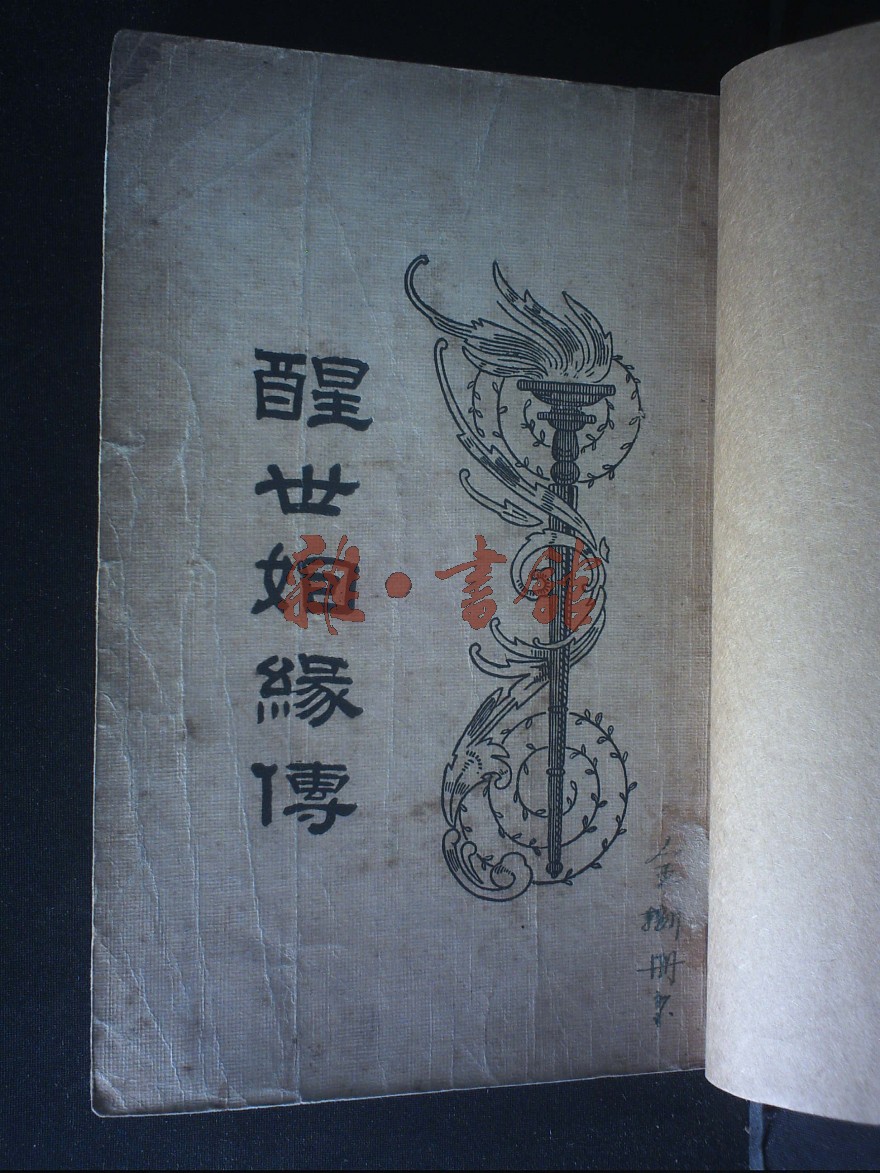 醒世姻緣傳
雜·書館